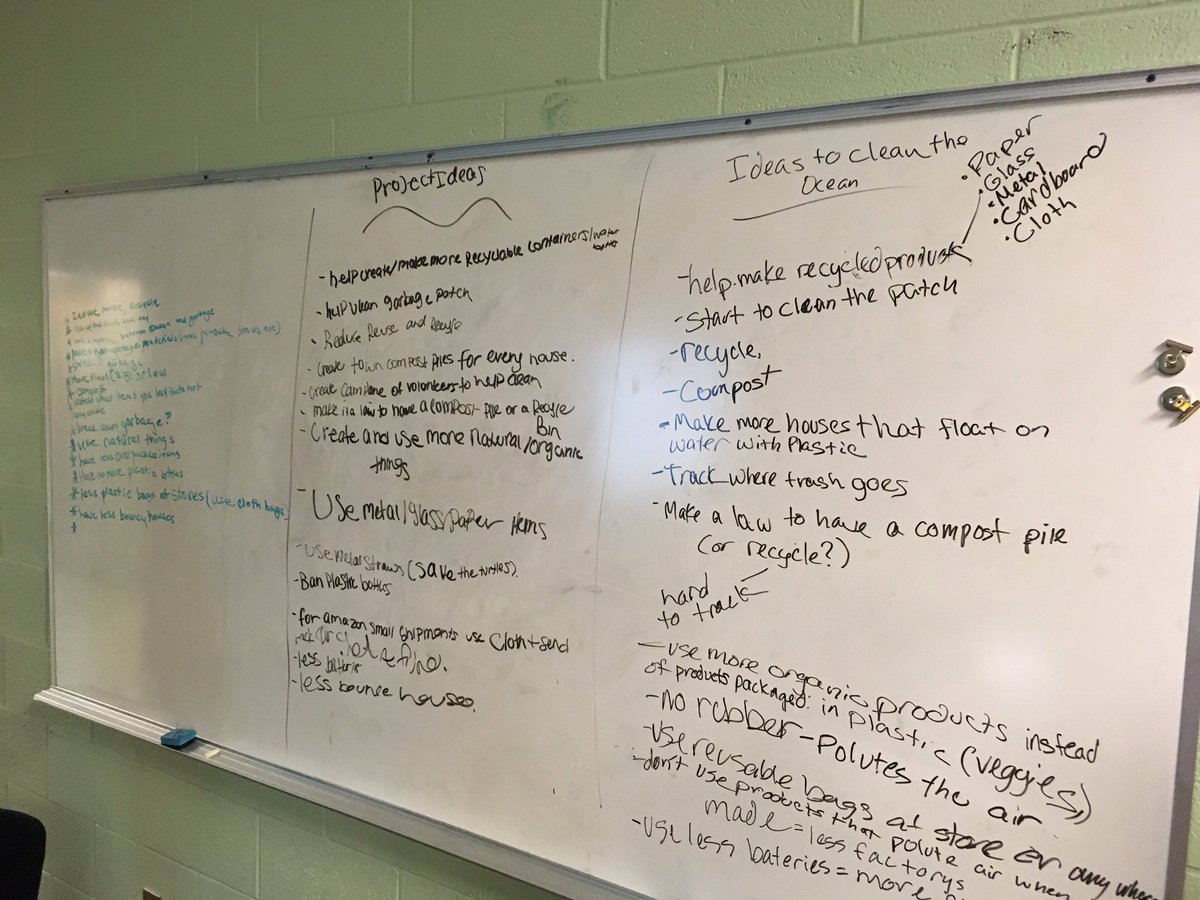 * Reduce reuse recycle
ocean and garbage
* Make non-garbage materials
garbage
* More Fines ($$) or law
* compost
* watch what items you buy
recyclable
* break down garbage?
* use natural things
* have less overpacked items
* Have no more plastic bottles
* less plastic bags at stores (use cloth bags)
* have less bouncy houses
*
Project Ideas
- help create/make more Recyclable containers/water bottles
- help clean garbage patch
- Reduce Reuse and Recycle
- Create town compost piles for every house.
- create of volonteers to help clean
- make it a law to have a compost pile or a Recycle
Bin
- Create and use more natural/organic
things
- Use metal/glass/paper items
- Use metal straws (save the turtles).
- Ban Plastic bottles
- for amazon small shipments use cloth + send
- less batterie
- less bounce houses.
Ideas to clean the
Ocean
• Paper
• Glass
• Metal
• Cardboard
• Cloth
- help make recycled products
- Start to clean the patch
- recycle,
- Compost
- Make more houses that float on
water with Plastic
- Track where trash goes
- Make a law to have a compost pile
(or recycle?)
hard
to track
- use more organic products instead
of products packaged in plastic (veggies)
- no rubber - Polutes the air
- use reusable bags at store or any where
- don't use products that polute air when
made = less factorys
- use less bateries = more